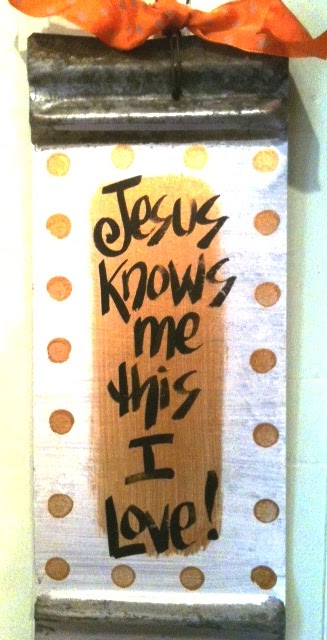 Jesus
knows
me
this
I
Love!